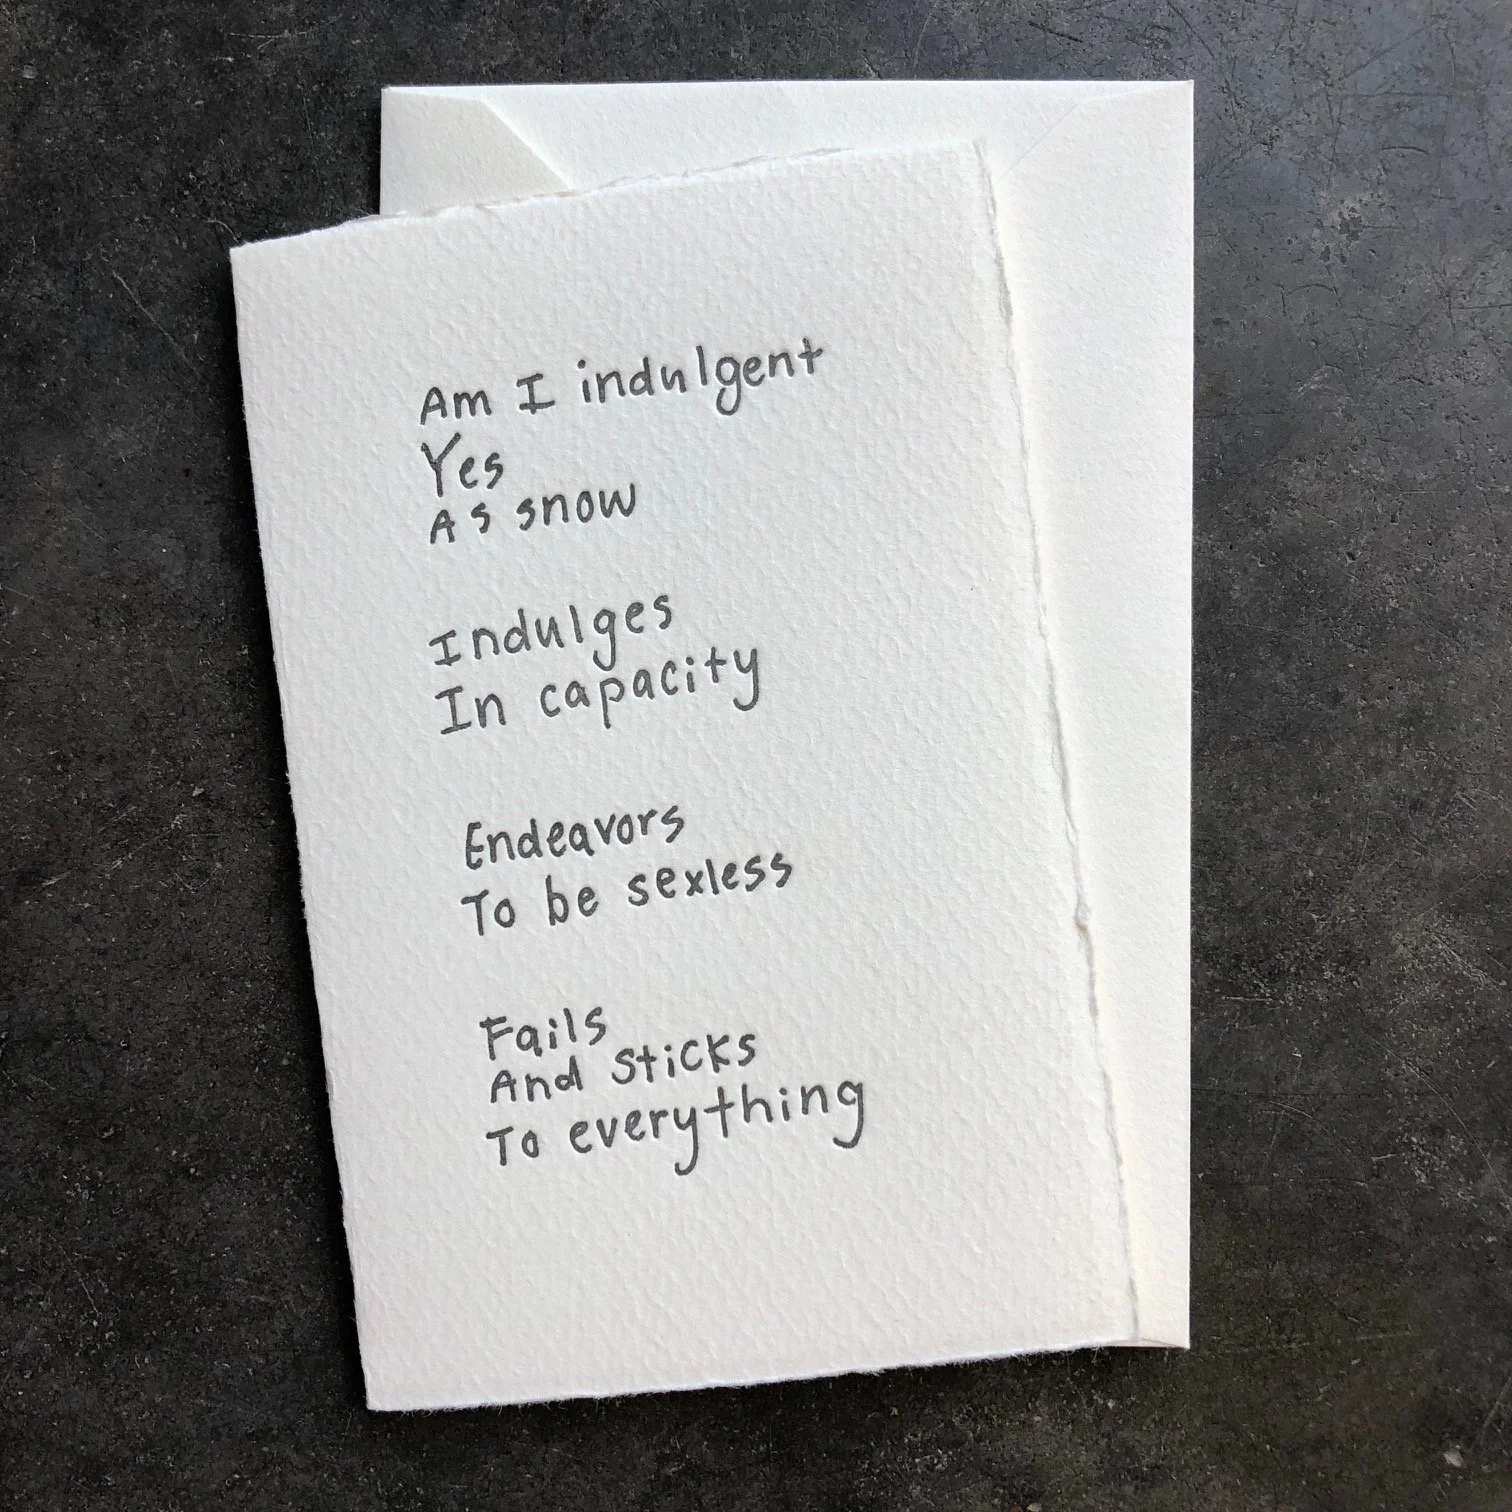 Am I indulgent
Yes
As snow
Indulges
In capacity
Endeavors
To be sexless
Fails
And sticks
To everything